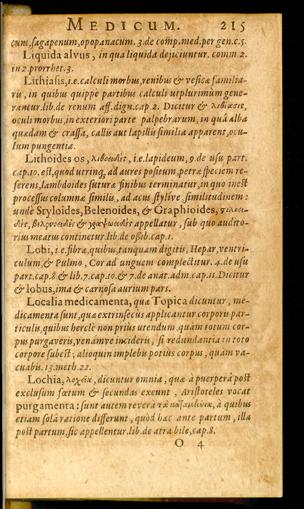 MEDICUM. 215
cum, sagapenum, opopanacum. 3. de comp. med. per gen. c. 5.
Liquida alvus, in qua liquida dejiciuntur. comm. 2.
in 2. prorrhet. 3.
Lithiasis, i.e. calculi morbus, renibus & vesicæ familia-
ris, in quibus quippe partibus calculi utplurimùm gene-
rantur. lib. de renum aff. dign. cap. 2. Dicitur & λιθίασις,
oculi morbus, in exteriori parte palpebrarum, in quâ alba
quædam & crassa, callis aut lapillis similia apparent, ocu-
lum pungentia.
Lithoides os, λιθοειδὲς, i.e. lapideum, 9. de usu part.
cap. 10. est, quod utrinq; ad aures positum, petræ speciem re-
ferens, lambdoides suturæ finibus terminatur, in quo inest
processus columnæ similis, ad acus stylive similitudinem:
unde Styloides, Belenoides, & Graphioides, στυλοει-
δὲς, βελονοειδὲς & γραφιοειδὲς appellatur, sub quo audito-
rius meatus continetur. lib. de ossib. cap. 1.
Lobi, i.e. fibræ, quibus, tanquam digitis, Hepar, ventri-
culum & Pulmo, Cor ad unguem complectitur. 4. de usu
part. cap. 8. & lib. 7. cap. 10. & 7. de anat. adm. cap. 11. Dicitur
& lobus, ima & carnosa aurium pars.
Localia medicamenta, quæ Topica dicuntur, me-
dicamenta sunt, quæ extrinsecùs applicantur corporis par-
ticulis, quibus herclè non priùs utendum, quàm totum cor-
pus purgaveris, venamve incideris, si redundantia in toto
corpore subest; alioquin implebis potiùs corpus, quàm va-
cuabis. 13. meth. 22.
Lochia, λοχεῖα, dicuntur omnia, quæ à puerperâ post
exclusum fœtum & secundas exeunt, Aristoteles vocat
purgamenta: sunt autem reverâ τὰ à quibus
etiam solâ ratione differunt, quòd hæc ante partum, illa
post partum, sic appellentur. lib. de atra bile, cap. 8.
O 4